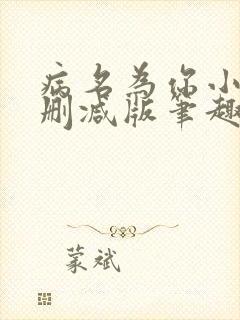 病名为你小
删减版笔趣
蒙斌